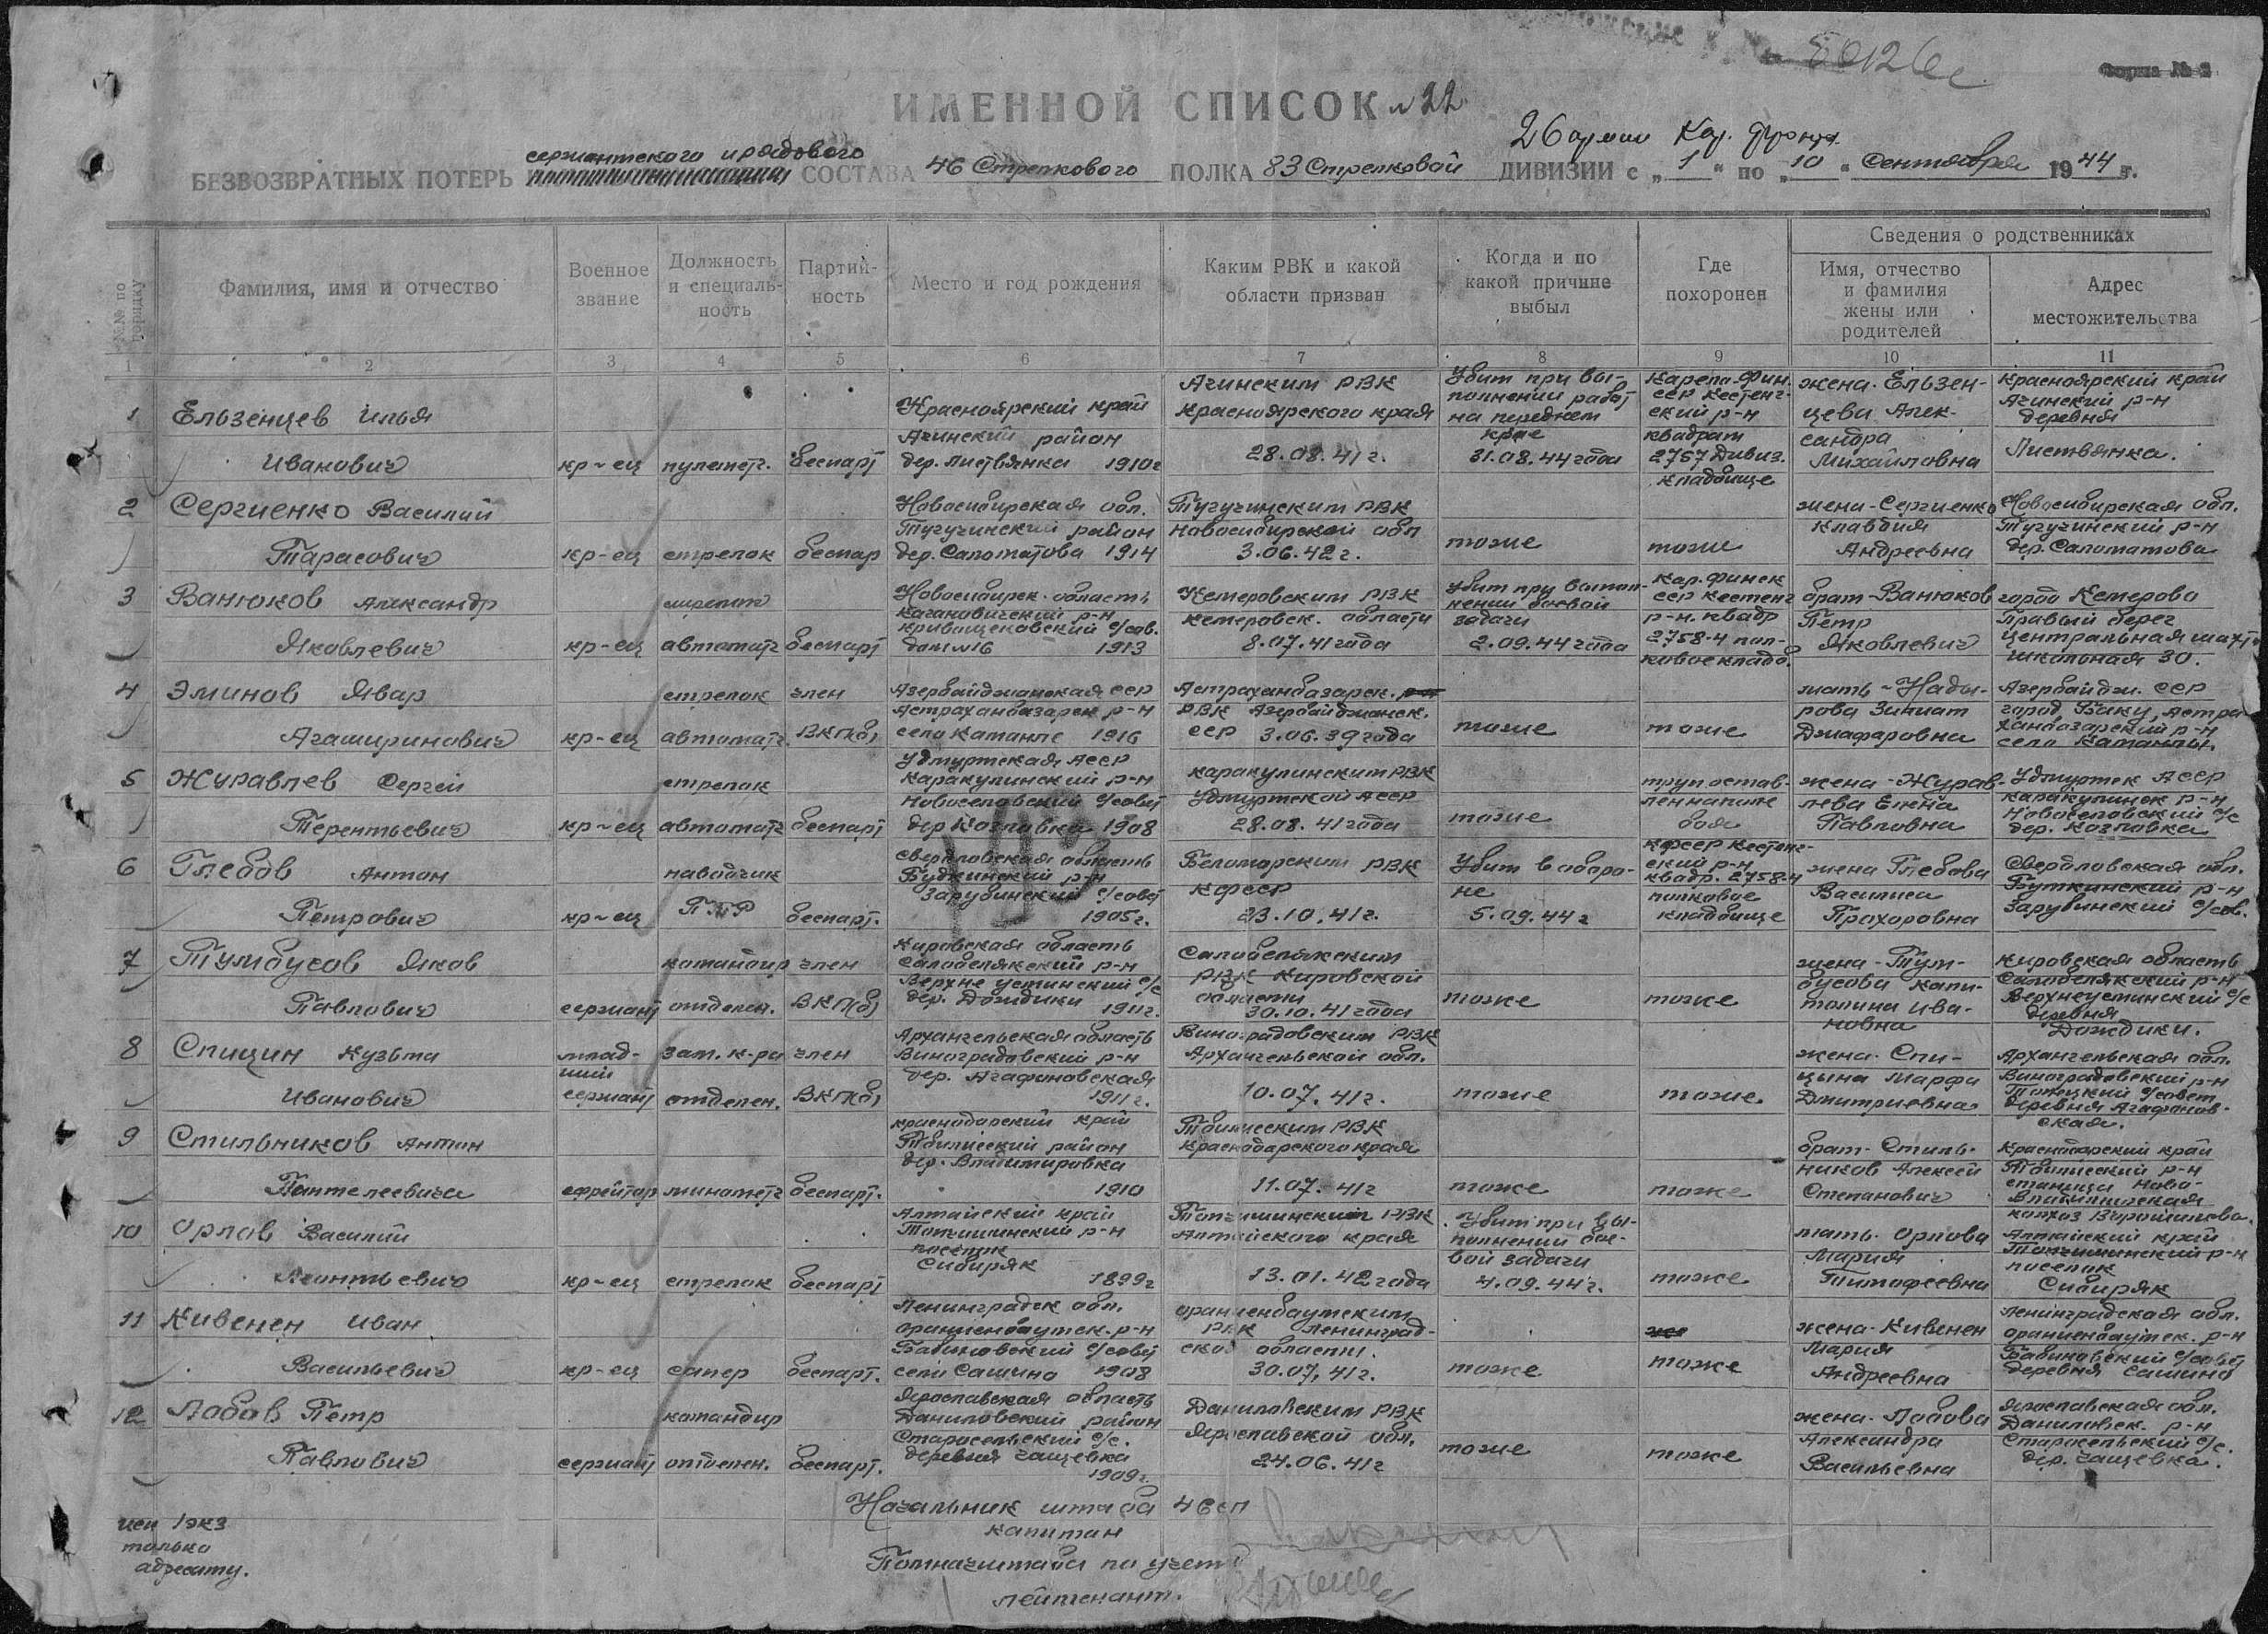 50126с
Форма № 2
ИМЕННОЙ СПИСОК № 22
26 армии Кар. фронта
сержантского и рядового
БЕЗВОЗВРАТНЫХ ПОТЕРЬ СОСТАВА 46 Стрелкового ПОЛКА 83 Стрелковой ДИВИЗИИ с „ 1 “ по „ 10 “ Сентября 1944 г.
№№ по порядку
Фамилия, имя и отчество
Военное звание
Должность и специаль-ность
Партий-ность
Место и год рождения
Каким РВК и какой области призван
Когда и по какой причине выбыл
Где похоронен
Сведения о родственниках
Имя, отчество и фамилия жены или родителей
Адрес местожительства
1 2 3 4 5 6 7 8 9 10 11
1 Ельзенцев Илья
Иванович
кр-ец
пулеметч.
беспарт
Красноярский край
Ачинский район
дер. Листвянка 1910г
Ачинским РВК
Красноярского края
28.08.41г.
Убит при вы-
полнении работ
на переднем
крае
31.08.44 года
Карело-Фин.
ССР Кестеньг-
ский р-н
квадрат
2757 Дивиз.
кладбище
жена-Ельзен-
цева Алек-
сандра
Михайловна
Красноярский край
Ачинский р-н
деревня
Листвянка.
2 Сергиенко Василий
Тарасович
кр-ец
стрелок
беспар
Новосибирская обл.
Тугучинский район
дер. Саломатова 1914
Тугучинским РВК
Новосибирской обл
3.06.42г.
тоже
тоже
жена-Сергиенко
Клавдия
Андреевна
Новосибирская обл.
Тугучинский р-н
дер. Саломатова
3 Ванюков Александр
Яковлевич
кр-ец
стрелок
автоматч
беспарт
Новосибирск. область
Кагановичский р-н
Кривощековский с/сов.
дом №16 1913
Кемеровским РВК
Кемеровск. области
8.07.41 года
Убит при выпол-
нении боевой
задачи
2.09.44 года
Кар. Финск
ССР Кестенг
р-н. квадр
2758-4 пол-
ковое кладб.
брат-Ванюков
Петр
Яковлевич
город Кемерово
Правый берег
Центральная шахта
Школьная 30.
4 Эминов Явар
Агаширинович
кр-ец
стрелок
автоматч.
член
ВКП(б)
Азербайджанская ССР
Астраханбазарск р-н
село Катанлы 1916
Астраханбазарск.
РВК Азербайджанск.
ССР 3.06.39 года
тоже
тоже
мать-Нады-
рова Зиниат
Джафаровна
Азербайдж. ССР
город Баку, Астра
ханбазарский р-н
село Катанлы.
5 Журавлев Сергей
Терентьевич
кр-ец
стрелок
автоматч
беспарт
Удмуртская АССР
Каракулинский р-н
Новоселовский с/совет
дер Козловка 1908
Каракулинским РВК
Удмуртской АССР
28.08.41 года
тоже
труп остав-
лен на поле
боя
жена-Журав-
лева Елена
Павловна
Удмуртск АССР
Каракулинск р-н
Новоселовский с/с
дер. Козловка
6 Глебов Антон
Петрович
кр-ец
наводчик
ПТР
беспарт.
Свердловская область
Буткинский р-н
Зарубинский с/совет
1905г.
Беломорским РВК
КФССР
23.10.41г.
Убит в оборо-
не
5.09.44г
КФССР Кестеньг-
ский р-н
квадр. 2758-4
полковое
кладбище
жена Глебова
Василиса
Прохоровна
Свердловская обл.
Буткинский р-н
Зарубинский с/сов.
7 Тумбусов Яков
Павлович
сержант
командир
отделен.
член
ВКП(б)
Кировская область
Салобелякский р-н
Верхне устинский с/с
дер. Дождики 1911г.
Салобелякским
РВК Кировской
области
30.10.41 года
тоже
тоже
жена-Тум-
бусова Капи-
толина Ива-
новна
Кировская область
Салобелякский р-н
Верхнеустинский с/с
деревня
Дождики.
8 Спицин Кузьма
Иванович
млад-
ший
сержант
зам. к-ра
отделен.
член
ВКП(б)
Архангельская область
Виноградовский р-н
дер. Агафоновская
1911г.
Виноградовским РВК
Архангельской обл.
10.07.41г.
тоже
тоже.
жена-Спи-
цына Марфа
Дмитриевна
Архангельская обл.
Виноградовский р-н
с/совет
деревня Агафонов-
ская.
9 Стильников Антон
Пантелеевича
ефрейтор
минометч
беспарт.
Краснодарский край
Тбилисский район
дер. Владимировка
1910
Тбилисским РВК
Краснодарского края
11.07.41г
тоже
тоже
брат-Стиль-
ников Алексей
Степанович
Краснодарский край
Тбилисский р-н
станица Ново-
Владимирская
колхоз Ворошилова.
10 Орлов Василий
Леонтьевич
кр-ец
стрелок
беспарт
Алтайский край
Топчихинский р-н
поселок
Сибиряк
1899г
Топчихинским РВК
Алтайского края
13.01.42 года
Убит при вы-
полнении бое-
вой задачи
4.09.44г.
тоже
мать-Орлова
Мария
Тимофеевна
Алтайский край
Топчихинский р-н
поселок
Сибиряк
11 Кивенен Иван
Васильевич
кр-ец
сапер
беспарт.
Ленинградск обл.
Ораниенбаумск. р-н
Бабиновский с/совет
село Сашино 1908
Ораниенбаумским
РВК Ленинград-
ской области.
30.07.41г.
тоже
тоже
жена-Кивенен
Мария
Андреевна
Ленинградская обл.
Ораниенбаумск. р-н
Бабиновский с/совет
деревня Сашино
12 Лобов Петр
Павлович
сержант
командир
отделен.
беспарт.
Ярославская область
Даниловский район
Старосельский с/с.
деревня Чащевка
1909г.
Даниловским РВК
Ярославской обл.
24.06.41г
тоже
тоже
жена-Лобова
Александра
Васильевна
Ярославская обл.
Даниловск. р-н
Старосельский с/с.
дер. Чащевка.
Начальник штаба 46 сп
капитан
Помначштаба по учету
лейтенант.
исп 1 экз
только
адресату.